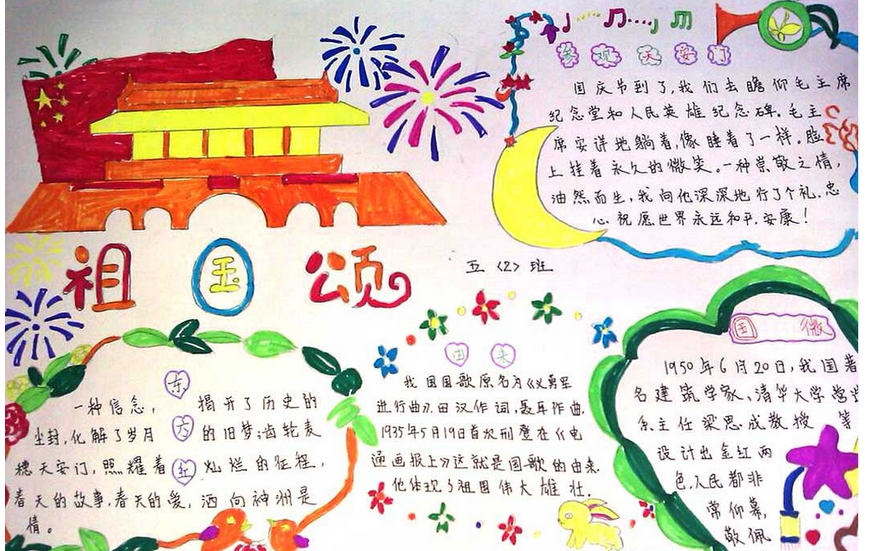 参观天安门
国庆节到了，我们去瞻仰毛主席
纪念堂和人民英雄纪念碑。毛主
席安详地躺着，像睡着了一样。脸
上挂着永久的微笑。一种崇敬之情，
油然而生，我向他深深地行了个礼。忠
心祝愿世界永远和平，安康！
祖国颂
五〈2〉班
东方红
一种信念，揭开了历史的
尘封，化解了岁月的旧梦；齿轮麦
穗天安门，照耀着灿烂的征程，
春天的故事，春天的爱，洒向神洲是
情。
由来
我国国歌原名为《义勇军
进行曲》。田汉作词，聂耳作曲，
1935年5月19日首次刑登在《电
通画报上》这就是国歌的由来。
他体现了祖国伟大雄壮。
国微
1950年6月20日，我国著
名建筑学家、清华大学营
系主任梁思成教授等
设计出金红两
色，人民都非
常仰慕，
敬佩